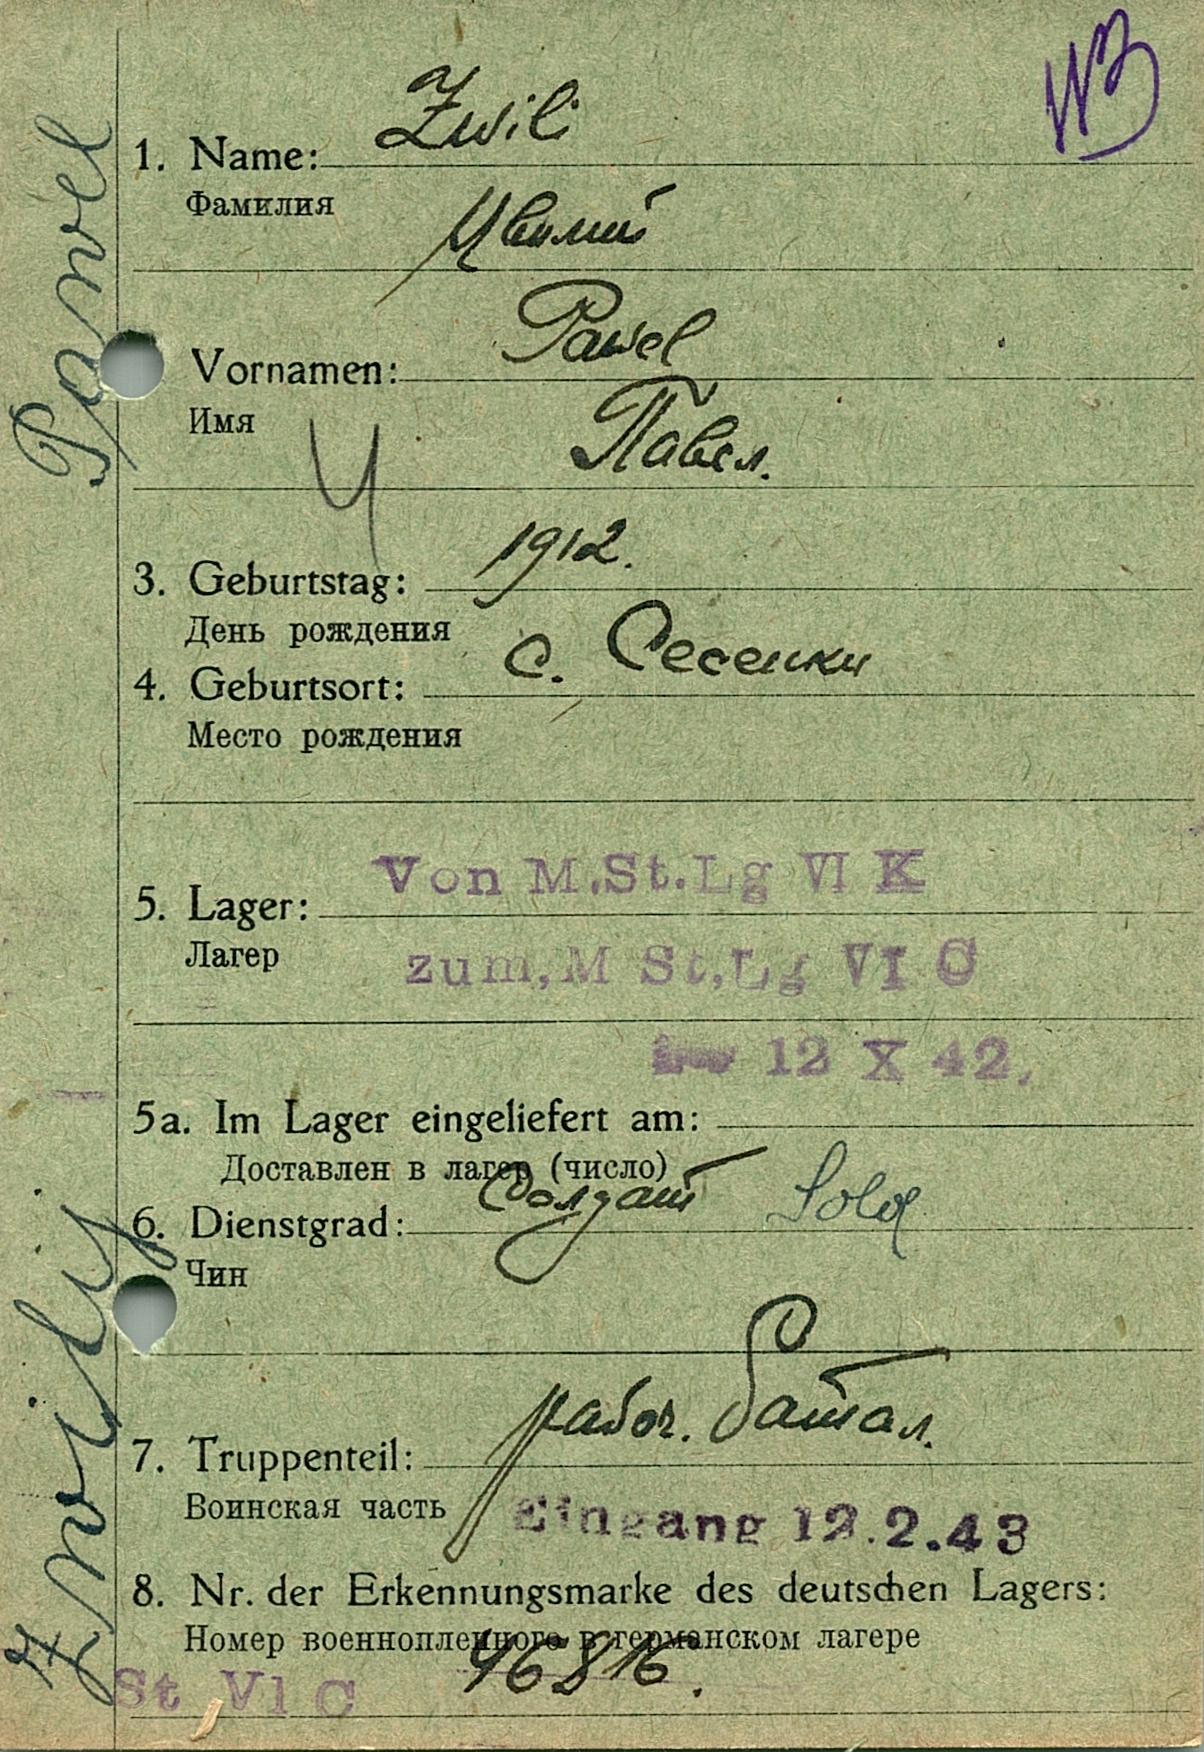 WB
Zwili
1. Name:
Фамилия
Цвилий
Pawel
Vornamen:
Имя
Павел.
Ч
1912.
3. Geburtstag:
День рождения
с. Сесенки
4. Geburtsort:
Место рождения
Von M.St.Lg VI K
5. Lager:
Лагер
zum, M St, Lg VI C
12 X 42.
5a. Im Lager eingeliefert am:
Доставлен в лагер (число)
Солдат Sold
6. Dienstgrad:
Чин
рабоч. батал.
7. Truppenteil:
Воинская часть
Eingang 12.2.43
8. Nr. der Erkennungsmarke des deutschen Lagers:
Номер военнопленного в германском лагере
46816.
St VI C
Zwilij Pawel